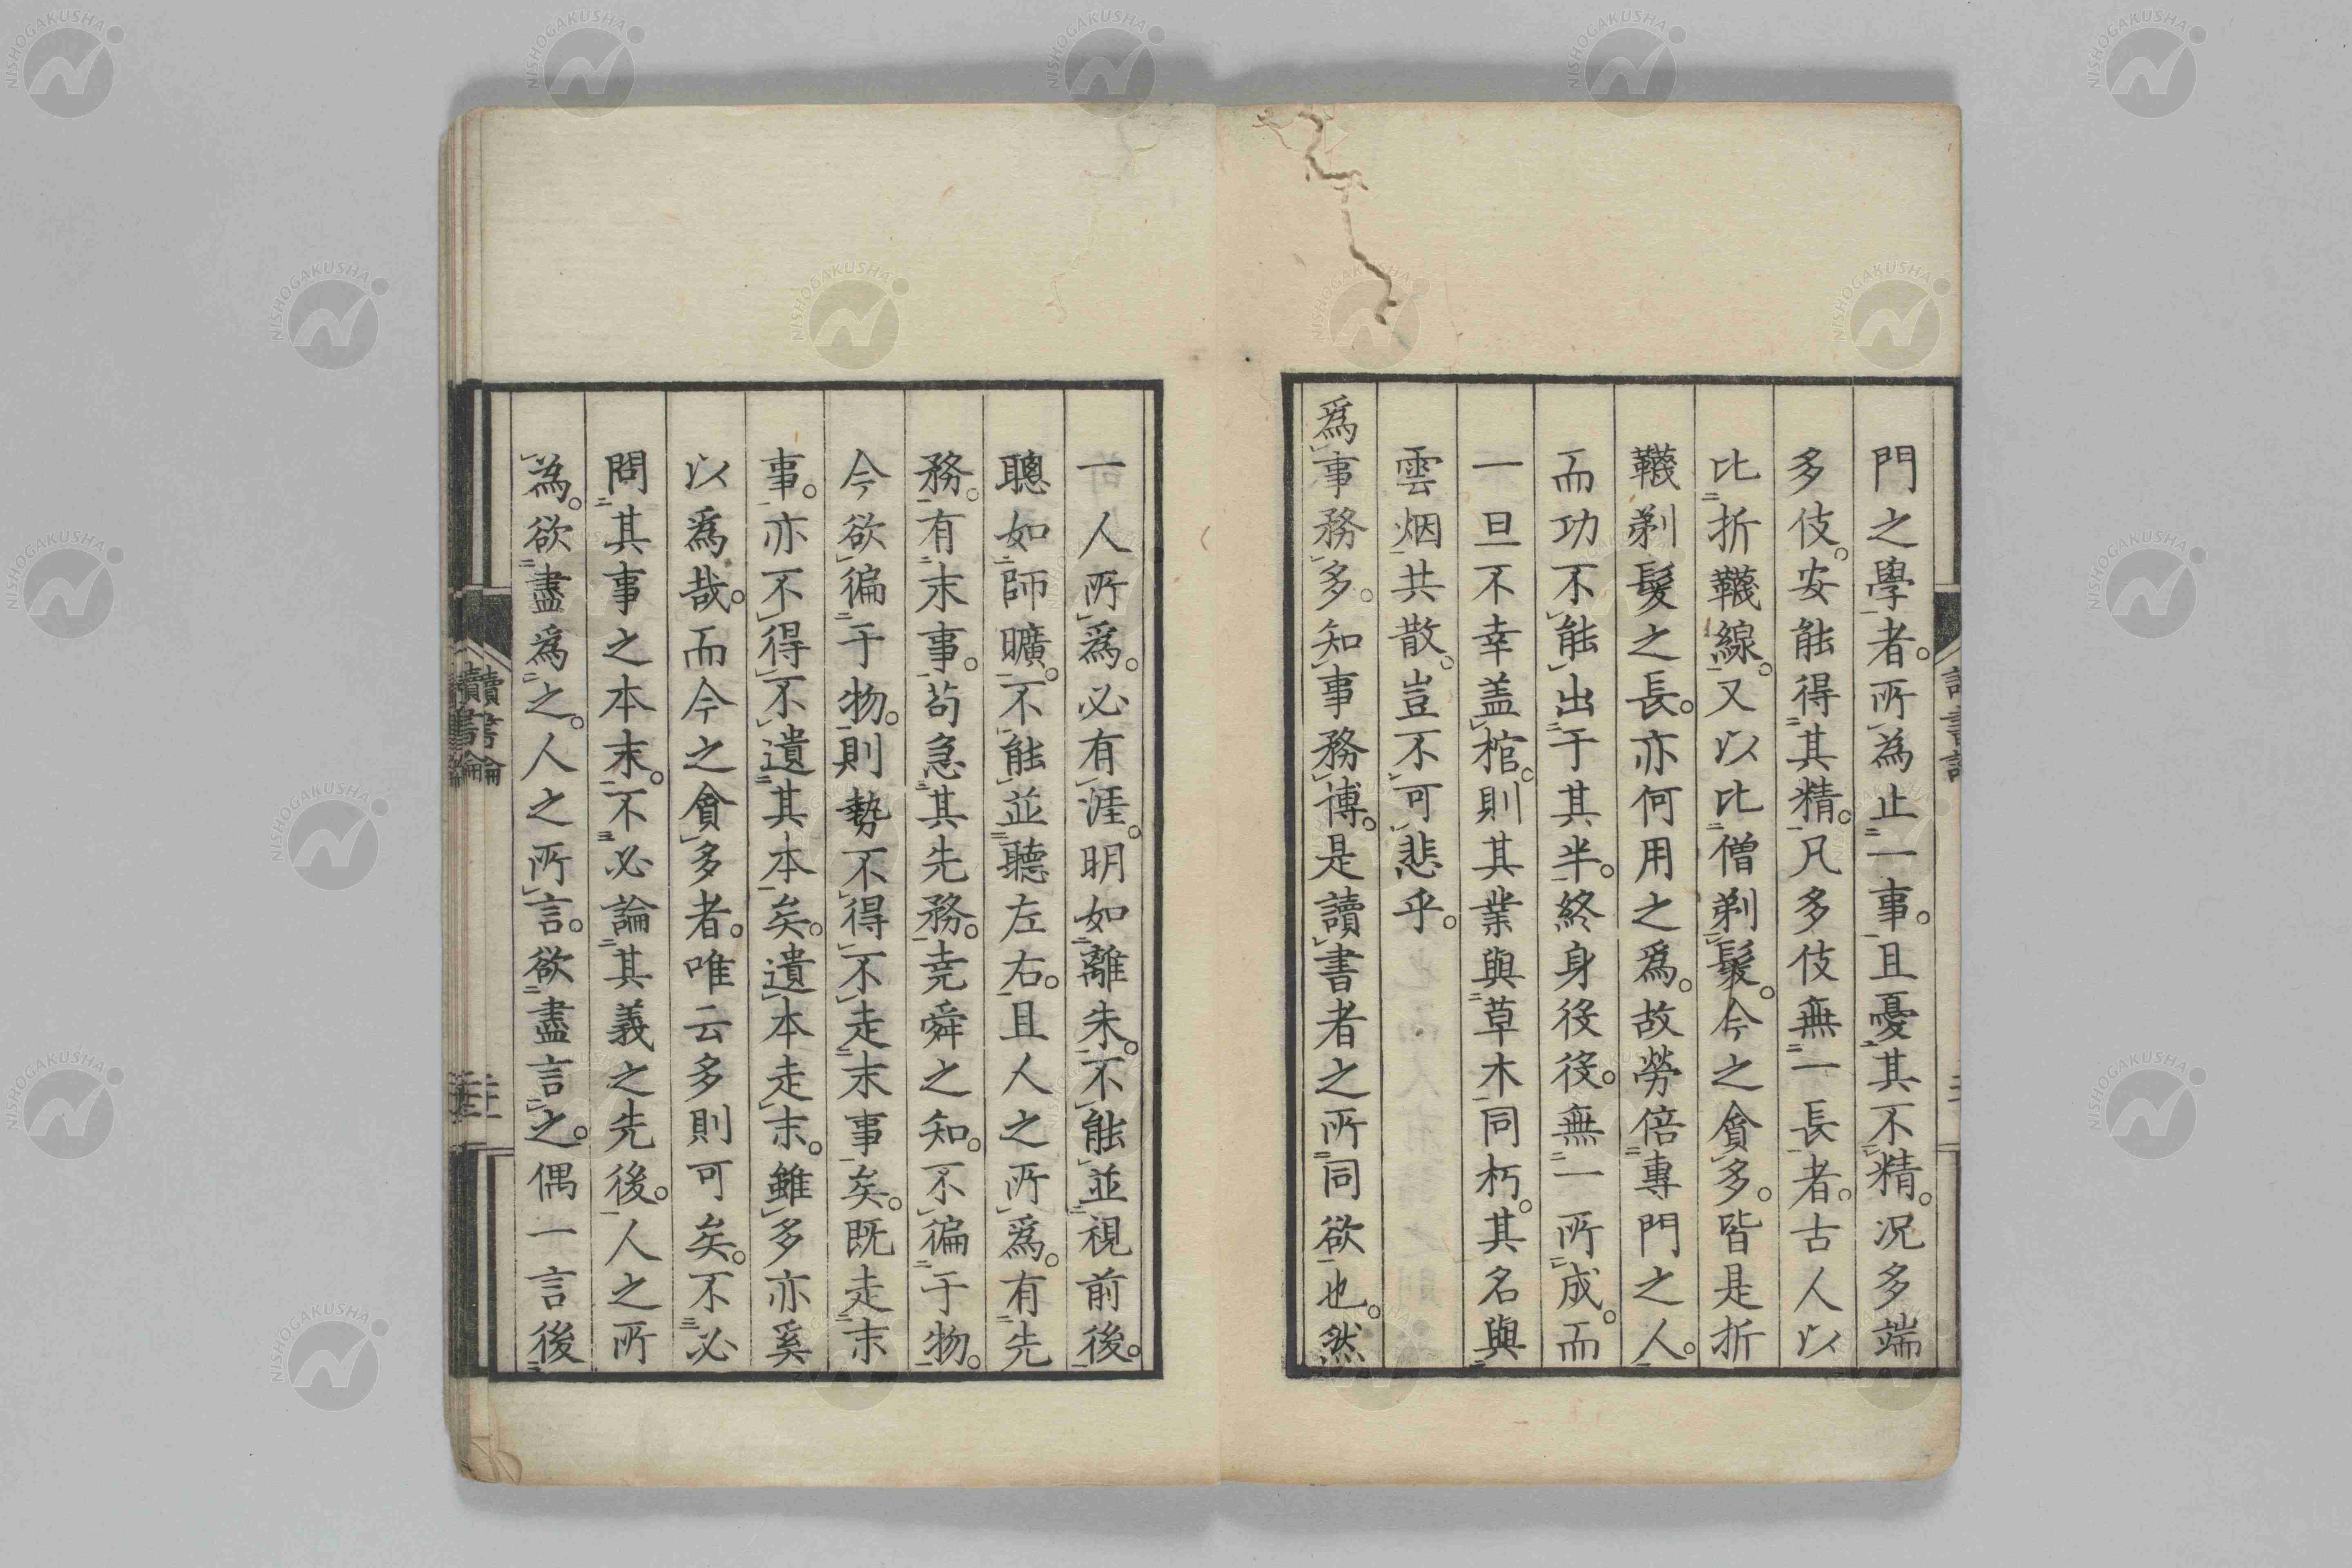 門之學者。所為止一事。且憂其不精。况多端
多伎。安能得其精。凡多伎無一長者。古人以
比折韈線。又以比僧剃髮。今之貪多。皆是折
韈剃髮之長。亦何用之爲。故勞倍專門之人。
而功不能出于其半。終身役役。無一所成。而
一旦不幸盖棺。則其業與草木同朽。其名與
雲烟共散。豈不可悲乎。
爲事務多。知事務博。是讀書者之所同欲也。然
一人所爲。必有涯。明如離朱。不能並視前後。
聰如師曠。不能並聽左右。且人之所爲。有先
務。有末事。苟急其先務。堯舜之知。不徧于物。
今欲徧于物。則勢不得不走末事矣。既走末
事。亦不得不遺其本矣。遺本走末。雖多亦奚
以爲哉。而今之貪多者。唯云多則可矣。不必
問其事之本末。不必論其義之先後。人之所
為。欲盡爲之。人之所言。欲盡言之。偶一言後
讀書論
NISHOGAKUSHA